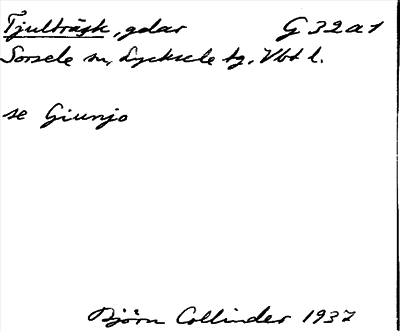 Tjulträsk, gdar G 32 a 1
Sorsele sn, Lycksele tg. Vbt l.
se Giunjo
Björn Collinder 1937